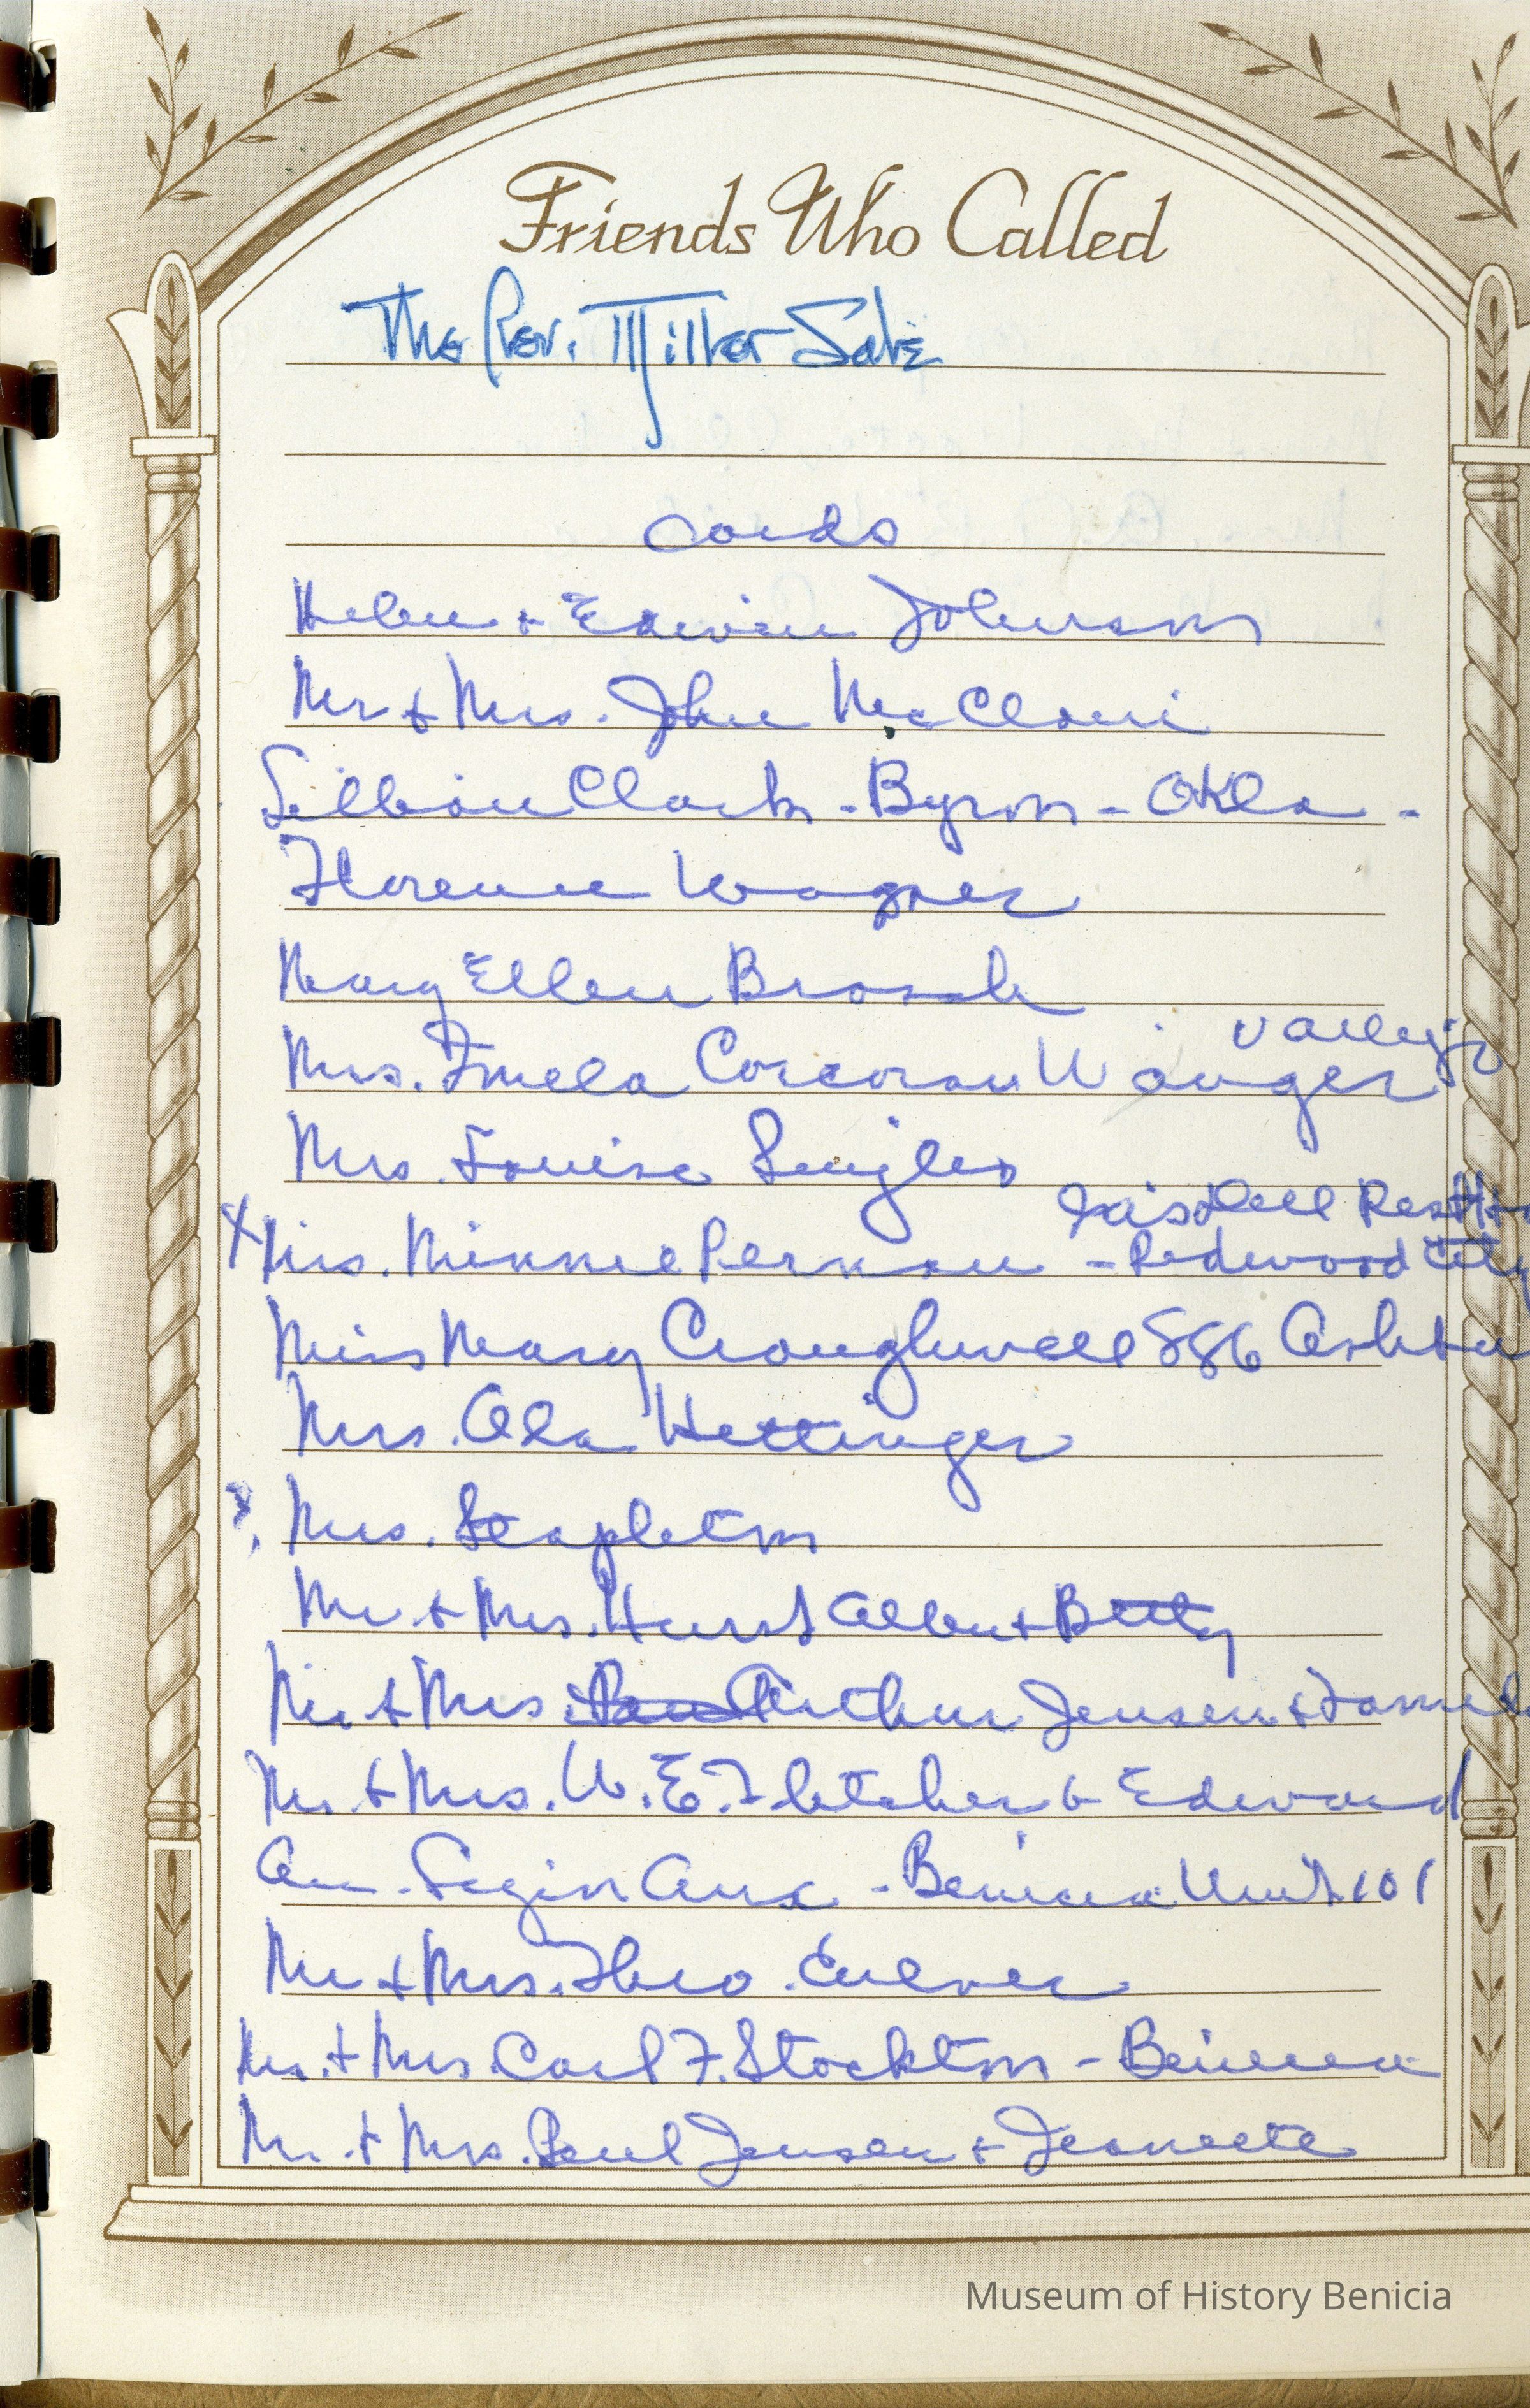 Friends Who Called
The Rev. Miller Sale
Cards
Helen + Edwin Johnson
Mr + Mrs. John
Lillian Clark - Byron - Okla -
Florence Wagner
Mary Ellen
Vallejo
Mrs. Imela Corcoran Winger
Mrs. Louise
Rest
Mrs. Minnie - Redwood City
Miss Mary Croughwell 886
Mrs. Ola Hettinger
? Mrs. Stapleton
Mr. + Mrs. Hurst Allen + Betty
Mr. + Mrs. Arthur Jensen +
Mr. + Mrs. W. E. Fletcher & Edward
Am. Legion Aux - Benicia Unit 101
Mr + Mrs. Theo. Culver
Mr. + Mrs Carl F. Stockton - Benicia
Mr. + Mrs. Paul Jensen + Jeanette
Museum of History Benicia